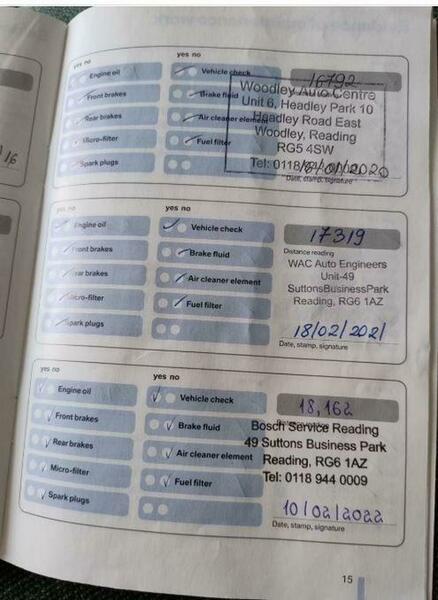 yes no
yes no
Engine oil
Vehicle check
16792
Front brakes
Brake fluid
Woodley Auto Centre
Unit 6, Headley Park 10
Rear brakes
Air cleaner element
Headley Road East
Woodley, Reading
Micro-filter
Fuel filter
RG5 4SW
Spark plugs
Tel: 0118
/01/2020
Date, stamp, signature
yes no
yes no
Engine oil
Vehicle check
17319
Distance reading
Front brakes
Brake fluid
WAC Auto Engineers
Unit-49
Rear brakes
Air cleaner element
SuttonsBusinessPark
Reading, RG6 1AZ
Micro-filter
Fuel filter
Spark plugs
18/02/2021
Date, stamp, signature
yes no
yes no
Engine oil
Vehicle check
18,162
Front brakes
Brake fluid
Bosch Service Reading
49 Suttons Business Park
Rear brakes
Air cleaner element
Reading, RG6 1AZ
Tel: 0118 944 0009
Micro-filter
Fuel filter
Spark plugs
10/02/2022
Date, stamp, signature
15